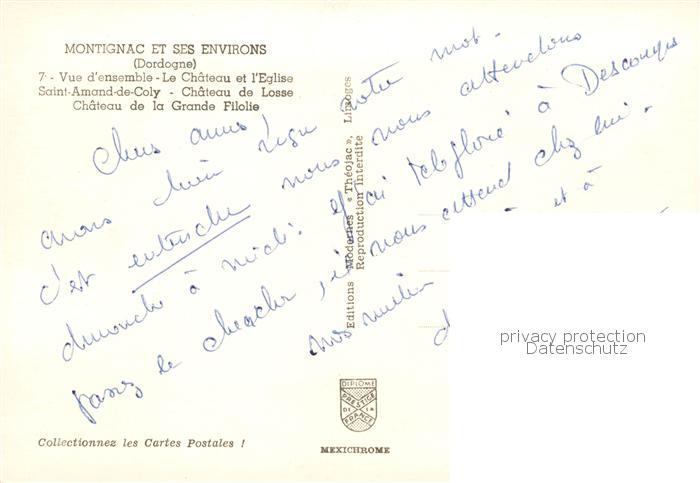 MONTIGNAC ET SES ENVIRONS
(Dordogne)
7 - Vue d'ensemble - Le Château et l'Eglise
Saint-Amand-de-Coly - Château de Losse
Château de la Grande Filolie
Chers amis !
avons bien reçu votre mot.
c'est entendu nous vous attendons
dimanche à midi. et ai téléphoné à
passer le chercher, il vous attend chez lui.
nos
et à
Editions Modernes « Théojac », Limoges
Reproduction interdite
privacy protection
Datenschutz
DIPLOME
PRESTIGE
DE LA
FRANCE
Collectionnez les Cartes Postales !
MEXICHROME